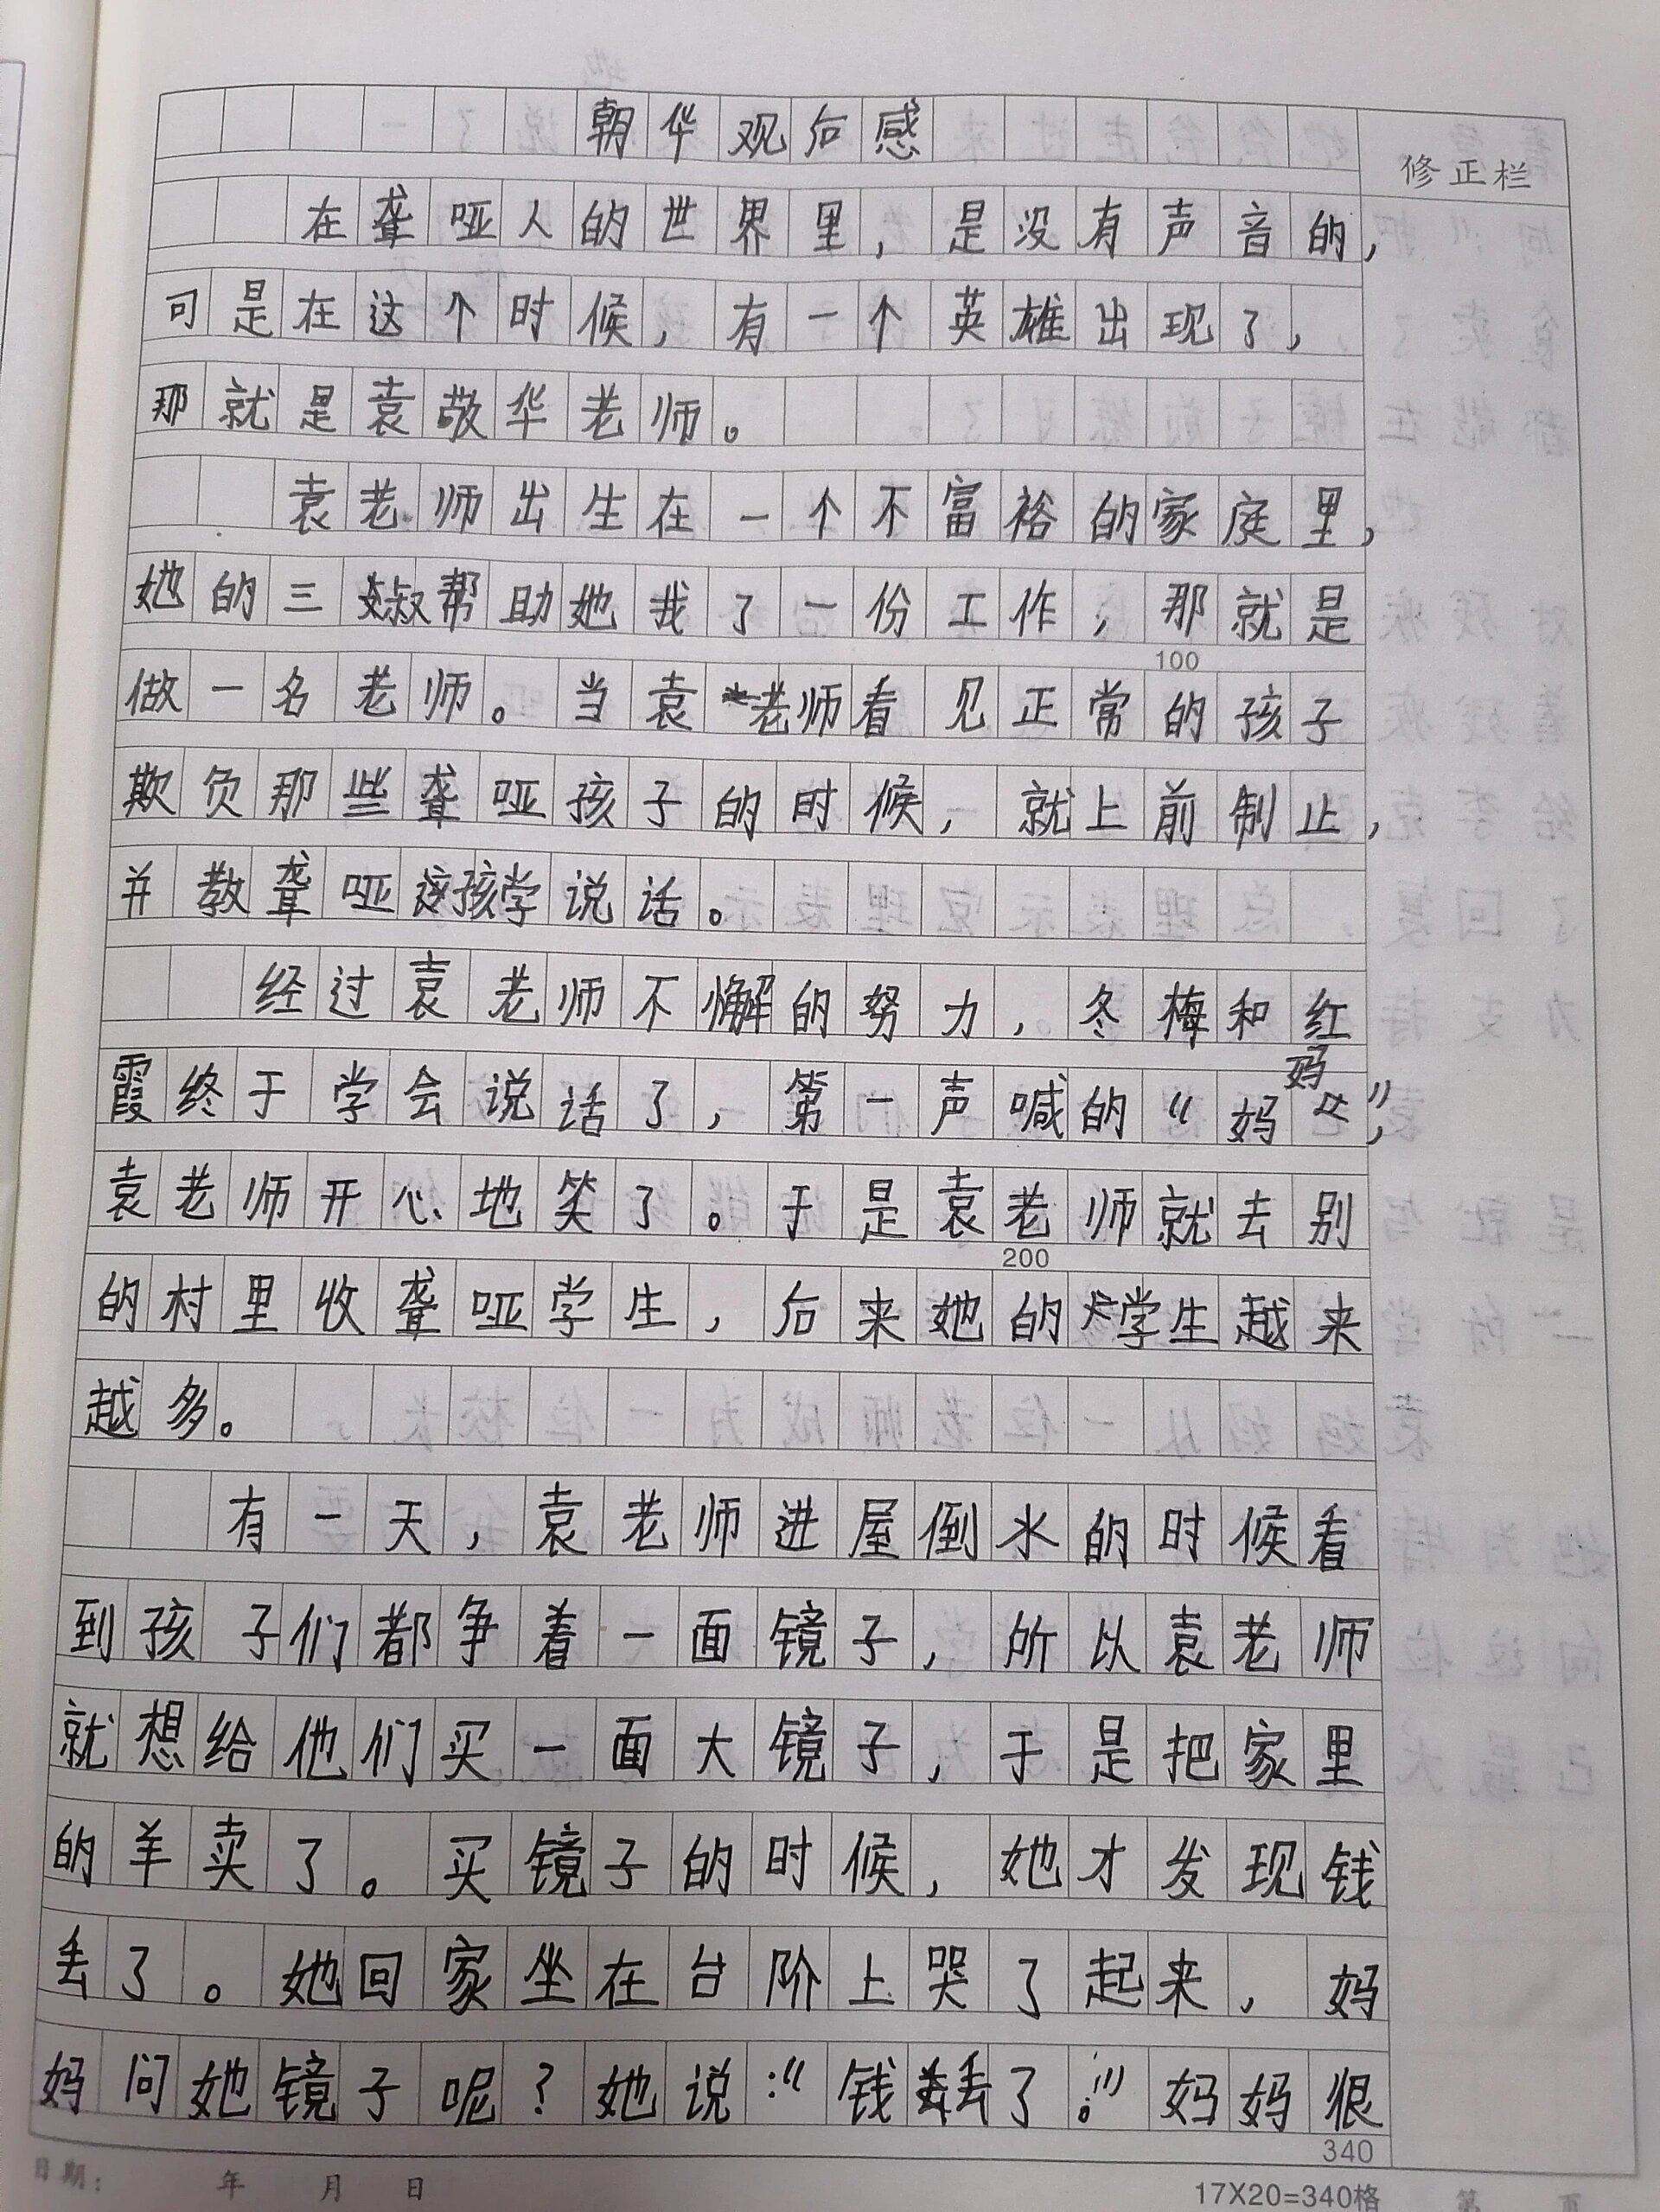 朝华观后感
修正栏
在聋哑人的世界里，是没有声音的，
可是在这个时候，有一个英雄出现了，
那就是袁敬华老师。
袁老师出生在一个不富裕的家庭里，
她的三叔帮助她找了一份工作，那就是
100
做一名老师。当袁老师看见正常的孩子
欺负那些聋哑孩子的时候，就上前制止，
并教聋哑孩学说话。
经过袁老师不懈的努力，冬梅和红
霞终于学会说话了，第一声喊的“妈妈”，
袁老师开心地笑了。于是袁老师就去别
200
的村里收聋哑学生，后来她的学生越来
越多。
有一天，袁老师进屋倒水的时候看
到孩子们都争着一面镜子，所以袁老师
就想给他们买一面大镜子，于是把家里
的羊卖了。买镜子的时候，她才发现钱
丢了。她回家坐在台阶上哭了起来，妈
妈问她镜子呢？她说：“钱丢了。”妈妈很
340
日期： 年 月 日
17X20=340格 第 页